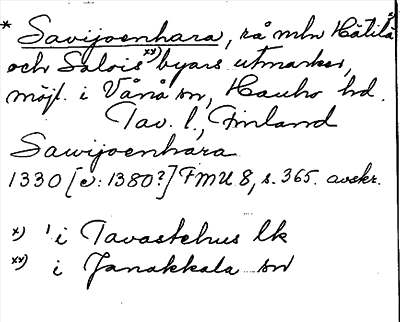 * Savijoenhara, rå mln Hätilä
och Salois xx) byars utmarker,
möjl. i Vånå sn, Hauho hd.
Tav. l., Finland
Sawijoenhara
1330 [c: 1380?] FMU 8, s. 365. avskr.
x) 'i Tavastehus lk
xx) i Janakkala sn